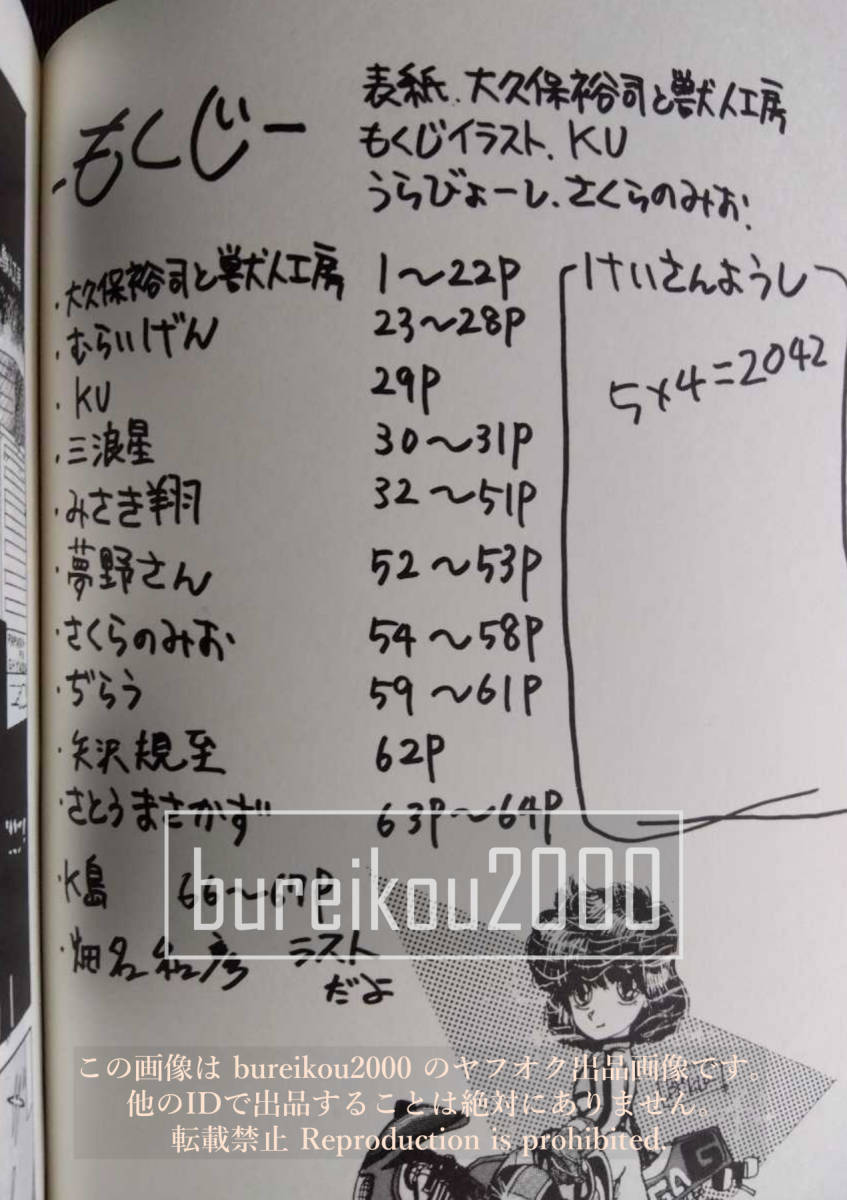 もくじー
表紙.大久保裕司と獣人工房
もくじイラスト.KU
うらびょーし.さくらのみお.
・大久保裕司と獣人工房 1〜22P
・むらいげん 23〜28P
・KU 29P
・三浪星 30〜31P
・みさき翔 32〜51P
・夢野さん 52〜53P
・さくらのみお 54〜58P
・ぢらう 59〜61P
・矢沢規至 62P
・さとうまさかず 63P〜64P
・K島 66〜67P
・畑名和彦 ラスト
だよ
けいさんようし
5×4=2042
bureikou2000
この画像は bureikou2000 のヤフオク出品画像です。
他のIDで出品することは絶対にありません。
転載禁止 Reproduction is prohibited.